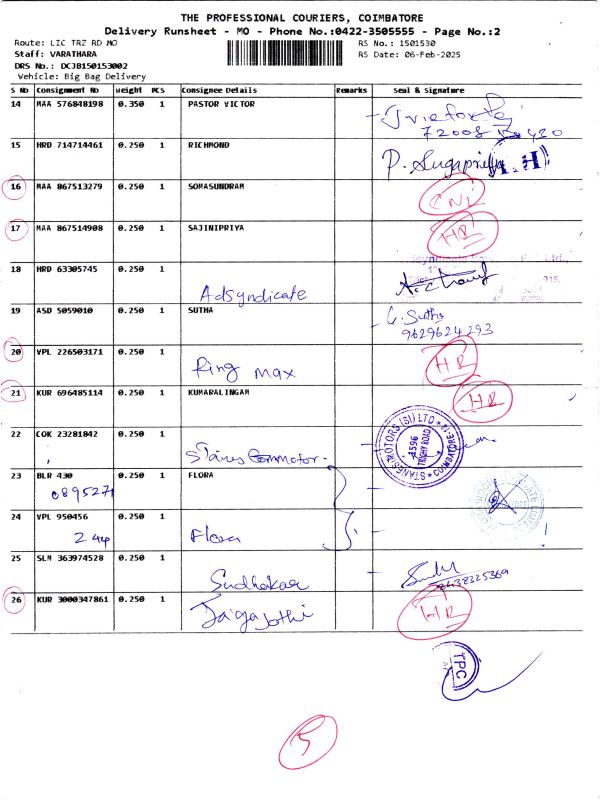 THE PROFESSIONAL COURIERS, COIMBATORE
Delivery Runsheet - MO - Phone No.:0422-3505555 - Page No.:2
Route: LIC TRZ RD MO RS No.: 1501530
Staff: VARATHARA RS Date: 06-Feb-2025
DRS No.: DCJB150153002
Vehicle: Big Bag Delivery
S No Consignment No Weight PCS Consignee Details Remarks Seal & Signature
14 MAA 576848198 0.350 1 PASTOR VICTOR
15 HRD 714714461 0.250 1 RICHMOND
16 MAA 867513279 0.250 1 SOMASUNDRAM
17 MAA 867514908 0.250 1 SAJINIPRIYA HR
18 HRD 63305745 0.250 1
Adsyndicate
19 ASD 5059010 0.250 1 SUTHA G. Sutha
9629624293
20 VPL 226503171 0.250 1 HR
Ring max
21 KUR 696485114 0.250 1 KUMARALINGAM HR
22 COK 23281842 0.250 1
STANES MOTORS (SI) LTD COIMBATORE-18
TRICHY ROAD
23 BLR 430 0.250 1 FLORA
0895271
24 VPL 950456 0.250 1
244 Flora
25 SLM 363974528 0.250 1
Sudhakar
26 KUR 3000347861 0.250 1 HR
Jaigajothi
TPC
5